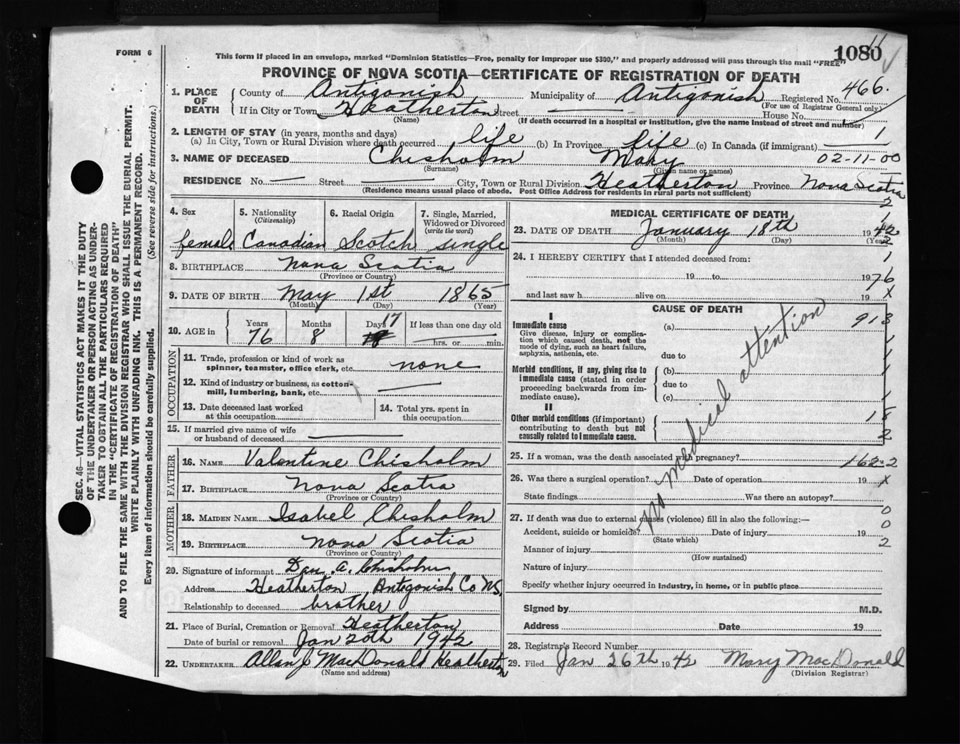 FORM 6
1080
This form if placed in an envelope, marked "Dominion Statistics—Free, penalty for improper use $300," and properly addressed will pass through the mail "FREE"
PROVINCE OF NOVA SCOTIA—CERTIFICATE OF REGISTRATION OF DEATH
1. PLACE OF DEATH County of Antigonish Municipality of Antigonish Registered No. 466.
(For use of Registrar General only)
If in City or Town Heatherton Street House No.
(Name) (If death occurred in a hospital or institution, give the name instead of street and number)
2. LENGTH OF STAY (in years, months and days)
(a) In City, Town or Rural Division where death occurred life (b) In Province life (c) In Canada (if immigrant) 1
3. NAME OF DECEASED Chisholm Mary 02-11-00
(Surname) (Given name or names)
RESIDENCE No. — Street City, Town or Rural Division Heatherton Province Nova Scotia
(Residence means usual place of abode. Post Office Address for residents in rural parts not sufficient)
4. Sex 5. Nationality 6. Racial Origin 7. Single, Married, Widowed or Divorced
(Citizenship) (write the word)
female Canadian Scotch single
8. BIRTHPLACE Nova Scotia
(Province or Country)
9. DATE OF BIRTH May 1st 1865
(Month) (Day) (Year)
10. AGE in Years Months Days If less than one day old
76 8 17 hrs. or min.
OCCUPATION
11. Trade, profession or kind of work as spinner, teamster, office clerk, etc. none
12. Kind of industry or business, as cotton-mill, lumbering, bank, etc.
13. Date deceased last worked at this occupation
14. Total yrs. spent in this occupation
15. If married give name of wife or husband of deceased
FATHER
16. NAME Valentine Chisholm
17. BIRTHPLACE Nova Scotia
(Province or Country)
MOTHER
18. MAIDEN NAME Isabel Chisholm
19. BIRTHPLACE Nova Scotia
(Province or Country)
20. Signature of informant Dan. A. Chisholm
Address Heatherton Antigonish Co NS.
Relationship to deceased brother
21. Place of Burial, Cremation or Removal Heatherton
Date of burial or removal Jan 20th 1942
22. UNDERTAKER Allan J MacDonald Heatherton
(Name and address)
MEDICAL CERTIFICATE OF DEATH
23. DATE OF DEATH January 18th 1942
(Month) (Day) (Year)
24. I HEREBY CERTIFY that I attended deceased from:
19 to 19 76
and last saw h alive on 19 X
CAUSE OF DEATH
I
Immediate cause (a) 913
Give disease, injury or complication which caused death, not the mode of dying, such as heart failure, asphyxia, asthenia, etc.
due to
Morbid conditions, if any, giving rise to immediate cause (stated in order proceeding backwards from immediate cause).
(b)
due to
(c)
II
Other morbid conditions (if important) contributing to death but not causally related to immediate cause.
no medical attention
25. If a woman, was the death associated with pregnancy? 162-2
26. Was there a surgical operation? Date of operation 19 X
State findings Was there an autopsy?
27. If death was due to external causes (violence) fill in also the following:—
Accident, suicide or homicide? Date of injury 19
(State which)
Manner of injury
(How sustained)
Nature of injury
Specify whether injury occurred in industry, in home, or in public place
Signed by M.D.
Address Date 19
28. Registrar's Record Number
29. Filed Jan 26th 1942 Mary MacDonald
(Division Registrar)
SEC. 46—VITAL STATISTICS ACT MAKES IT THE DUTY
OF THE UNDERTAKER OR PERSON ACTING AS UNDER-
TAKER TO OBTAIN ALL THE PARTICULARS REQUIRED
IN THE "CERTIFICATE OF REGISTRATION OF DEATH"
AND TO FILE THE SAME WITH THE DIVISION REGISTRAR WHO SHALL ISSUE THE BURIAL PERMIT.
WRITE PLAINLY WITH UNFADING INK. THIS IS A PERMANENT RECORD.
Every item of information should be carefully supplied. (See reverse side for instructions.)